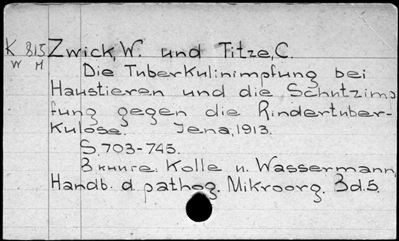 K 815 Zwick, W. und Titze, C.
W H
Die Tuberkulinimpfung bei
Haustieren und die Schutzimp
fung gegen die Rindertuber-
kulose. Jena, 1913.
S. 703-745.
В книге: Kolle u. Wassermann,
Handb. d. pathog. Mikroorg. Bd. 5.